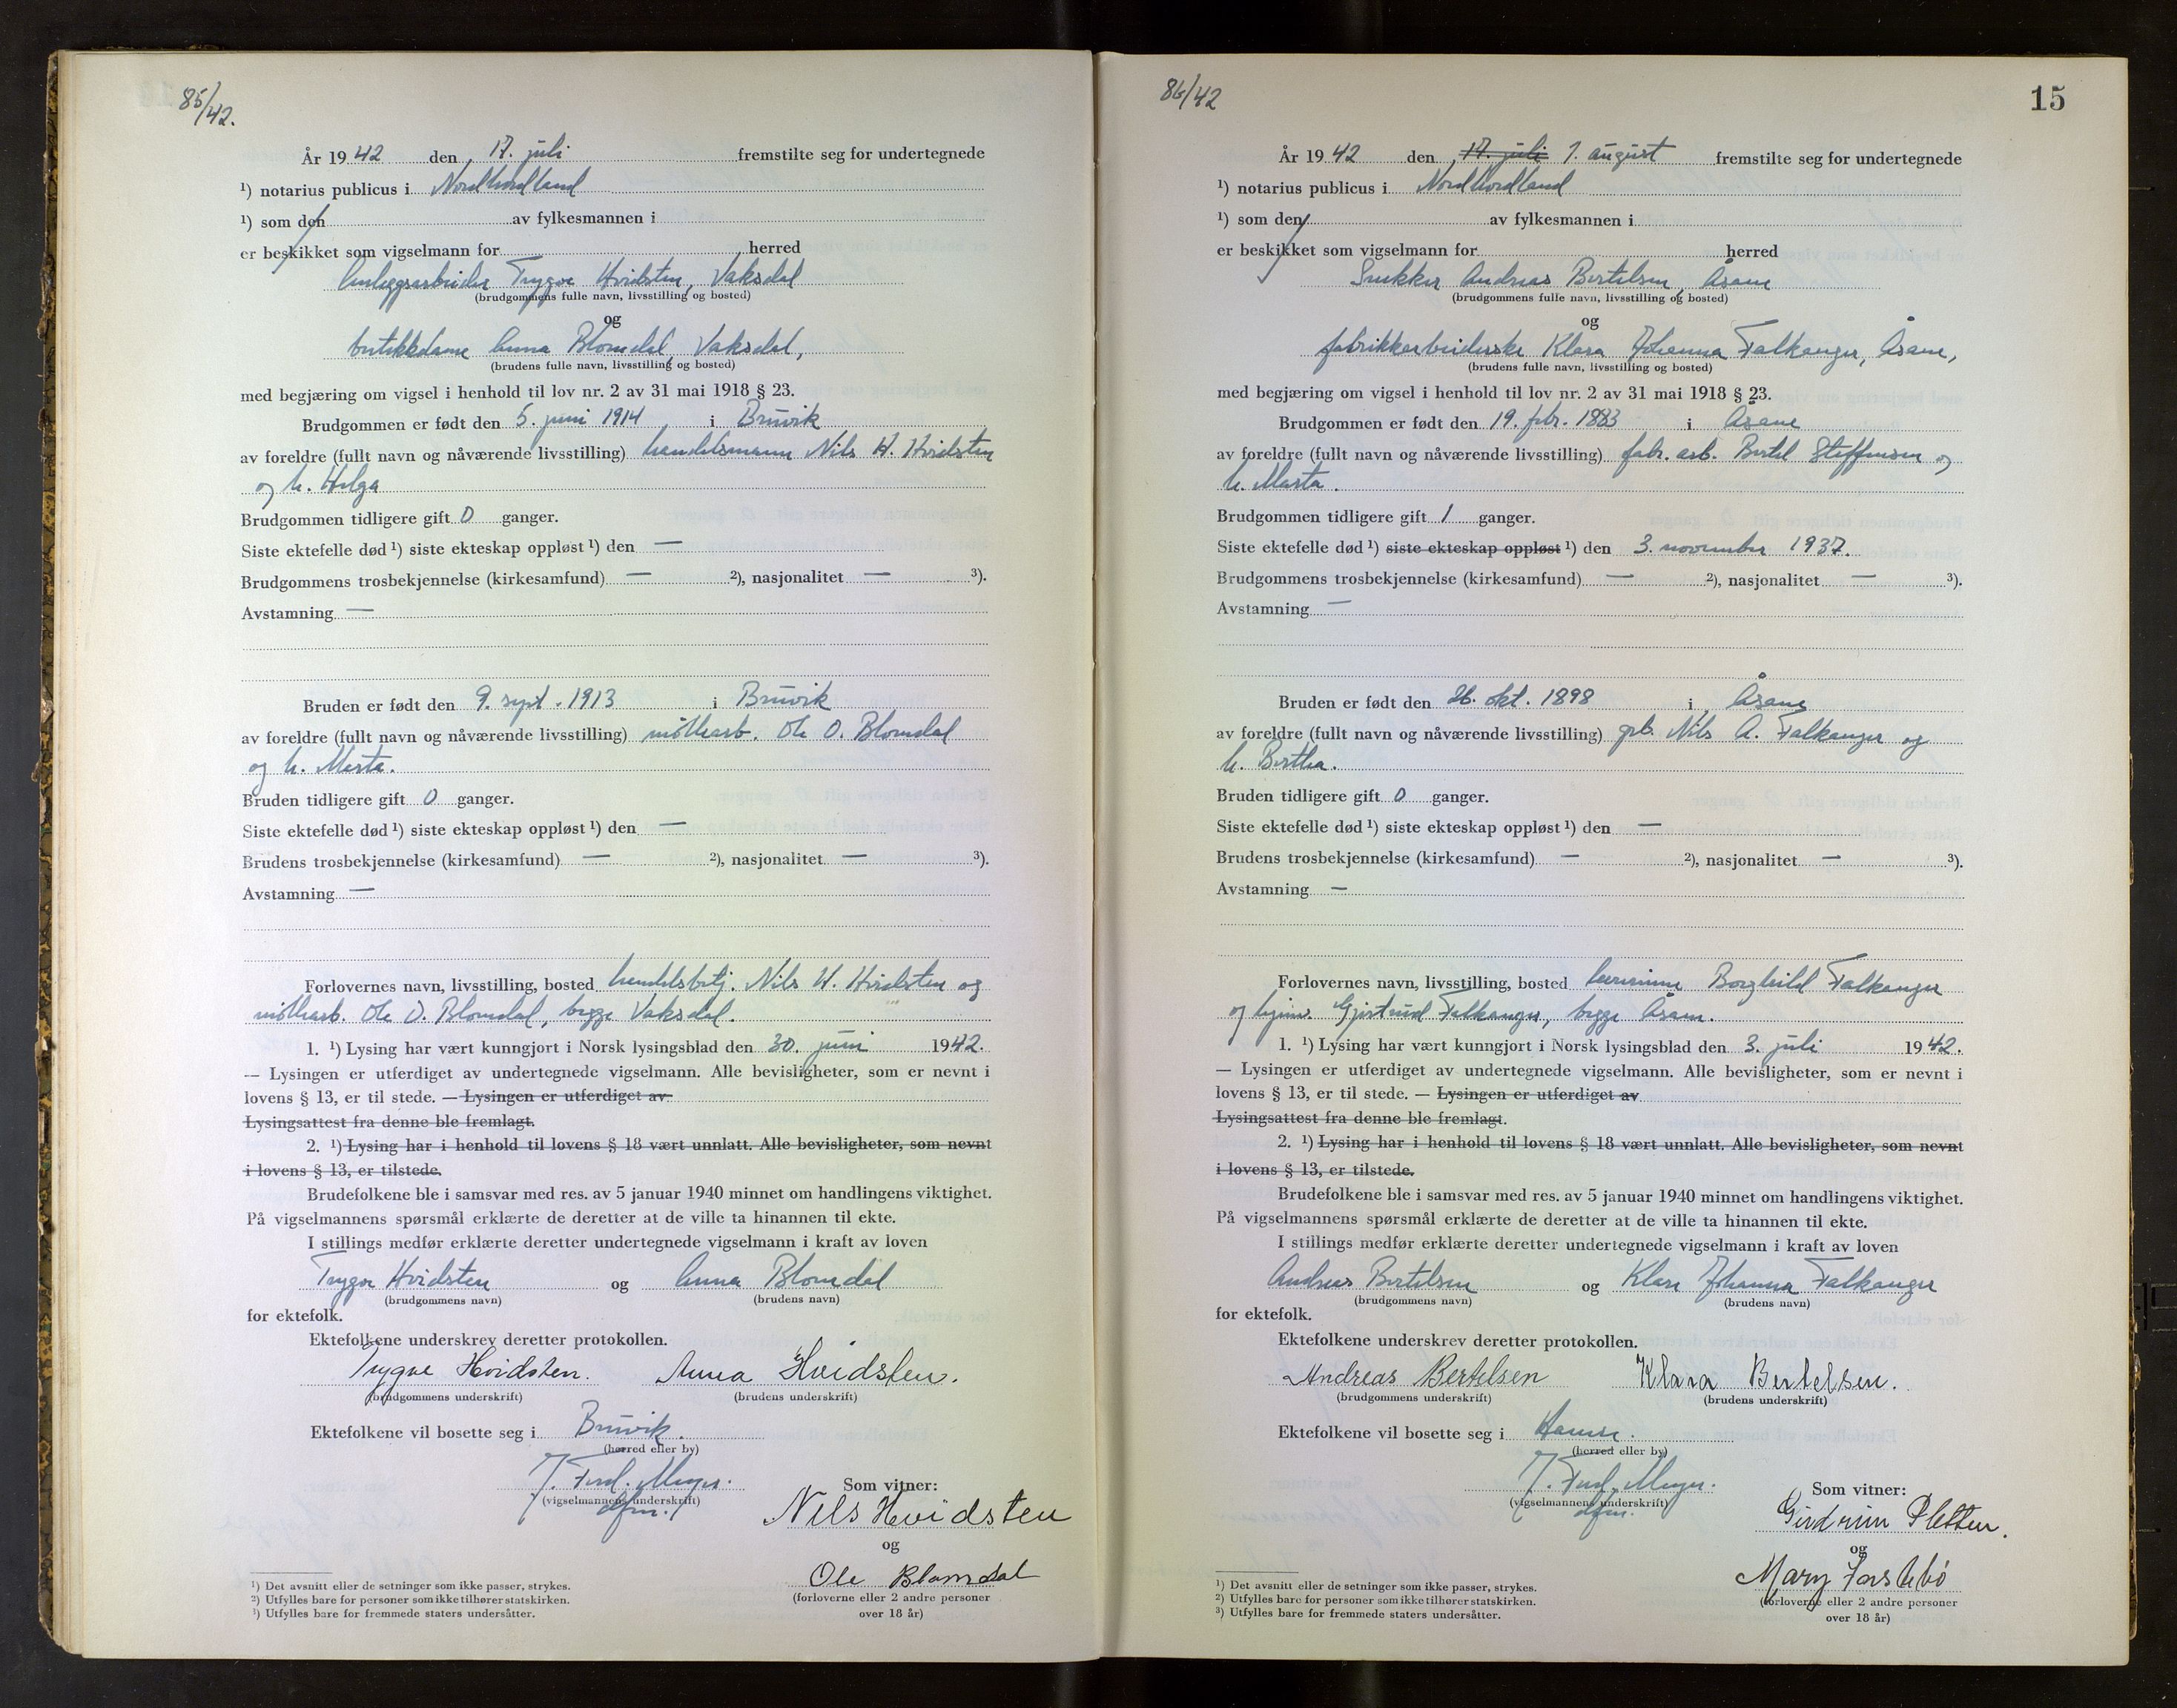 85/42.
År 1942 den 17. juli fremstilte seg for undertegnede
¹) notarius publicus i Nordhordland
¹) som den av fylkesmannen i
er beskikket som vigselmann for herred
Anleggsarbeider Trygve Hvidsten, Vaksdal
(brudgommens fulle navn, livsstilling og bosted)
og
butikkdame Anna Blomdal, Vaksdal,
(brudens fulle navn, livsstilling og bosted)
med begjæring om vigsel i henhold til lov nr. 2 av 31 mai 1918 § 23.
Brudgommen er født den 5. juni 1914 i Bruvik
av foreldre (fullt navn og nåværende livsstilling) handelsmann Nils H. Hvidsten
og h. Helga
Brudgommen tidligere gift 0 ganger.
Siste ektefelle død ¹) siste ekteskap oppløst ¹) den —
Brudgommens trosbekjennelse (kirkesamfund) — ²), nasjonalitet — ³).
Avstamning —
Bruden er født den 9. sept. 1913 i Bruvik
av foreldre (fullt navn og nåværende livsstilling) møllearb. Ole O. Blomdal
og h. Marta.
Bruden tidligere gift 0 ganger.
Siste ektefelle død ¹) siste ekteskap oppløst ¹) den —
Brudens trosbekjennelse (kirkesamfund) — ²), nasjonalitet — ³).
Avstamning —
Forlovernes navn, livsstilling, bosted handelsbetj. Nils H. Hvidsten og
møllearb. Ole O. Blomdal, begge Vaksdal.
1. ¹) Lysing har vært kunngjort i Norsk lysingsblad den 30. juni 1942.
— Lysingen er utferdiget av undertegnede vigselmann. Alle bevisligheter, som er nevnt i
lovens § 13, er til stede. — Lysingen er utferdiget av
Lysingsattest fra denne ble fremlagt.
2. ¹) Lysing har i henhold til lovens § 18 vært unnlatt. Alle bevisligheter, som nevnt
i lovens § 13, er tilstede.
Brudefolkene ble i samsvar med res. av 5 januar 1940 minnet om handlingens viktighet.
På vigselmannens spørsmål erklærte de deretter at de ville ta hinannen til ekte.
I stillings medfør erklærte deretter undertegnede vigselmann i kraft av loven
Trygve Hvidsten og Anna Blomdal
(brudgommens navn) (brudens navn)
for ektefolk.
Ektefolkene underskrev deretter protokollen.
Trygve Hvidsten. Anna Hvidsten.
(brudgommens underskrift) (brudens underskrift)
Ektefolkene vil bosette seg i Bruvik.
(herred eller by)
J. Ferd. Meyer.
(vigselmannens underskrift)
dfm.
Som vitner:
Nils Hvidsten
og
Ole Blomdal
(forloverne eller 2 andre personer
over 18 år)
¹) Det avsnitt eller de setninger som ikke passer, strykes.
²) Utfylles bare for personer som ikke tilhører statskirken.
³) Utfylles bare for fremmede staters undersåtter.
86/42
15
År 1942 den 17. juli 1. august fremstilte seg for undertegnede
¹) notarius publicus i Nordhordland
¹) som den av fylkesmannen i
er beskikket som vigselmann for herred
Snekker Andreas Bertelsen, Åsane
(brudgommens fulle navn, livsstilling og bosted)
og
fabrikkarbeiderske Klara Johanna Falkanger, Åsane,
(brudens fulle navn, livsstilling og bosted)
med begjæring om vigsel i henhold til lov nr. 2 av 31 mai 1918 § 23.
Brudgommen er født den 19. febr. 1883 i Åsane
av foreldre (fullt navn og nåværende livsstilling) fabr. arb. Bertel Steffensen og
h. Marta.
Brudgommen tidligere gift 1 ganger.
Siste ektefelle død ¹) siste ekteskap oppløst ¹) den 3. november 1937.
Brudgommens trosbekjennelse (kirkesamfund) — ²), nasjonalitet — ³).
Avstamning —
Bruden er født den 26. okt. 1898 i Åsane
av foreldre (fullt navn og nåværende livsstilling) grb. Nils A. Falkanger og
h. Bertha.
Bruden tidligere gift 0 ganger.
Siste ektefelle død ¹) siste ekteskap oppløst ¹) den —
Brudens trosbekjennelse (kirkesamfund) — ²), nasjonalitet — ³).
Avstamning —
Forlovernes navn, livsstilling, bosted lærerinne Borghild Falkanger
og hjemv. Gjertrud Falkanger, begge Åsane.
1. ¹) Lysing har vært kunngjort i Norsk lysingsblad den 3. juli 1942.
— Lysingen er utferdiget av undertegnede vigselmann. Alle bevisligheter, som er nevnt i
lovens § 13, er til stede. — Lysingen er utferdiget av
Lysingsattest fra denne ble fremlagt.
2. ¹) Lysing har i henhold til lovens § 18 vært unnlatt. Alle bevisligheter, som nevnt
i lovens § 13, er tilstede.
Brudefolkene ble i samsvar med res. av 5 januar 1940 minnet om handlingens viktighet.
På vigselmannens spørsmål erklærte de deretter at de ville ta hinannen til ekte.
I stillings medfør erklærte deretter undertegnede vigselmann i kraft av loven
Andreas Bertelsen og Klara Johanna Falkanger
(brudgommens navn) (brudens navn)
for ektefolk.
Ektefolkene underskrev deretter protokollen.
Andreas Bertelsen Klara Bertelsen.
(brudgommens underskrift) (brudens underskrift)
Ektefolkene vil bosette seg i Hamre.
(herred eller by)
J. Ferd. Meyer.
(vigselmannens underskrift)
dfm.
Som vitner:
Gudrun Pletten.
og
Mary
(forloverne eller 2 andre personer
over 18 år)
¹) Det avsnitt eller de setninger som ikke passer, strykes.
²) Utfylles bare for personer som ikke tilhører statskirken.
³) Utfylles bare for fremmede staters undersåtter.